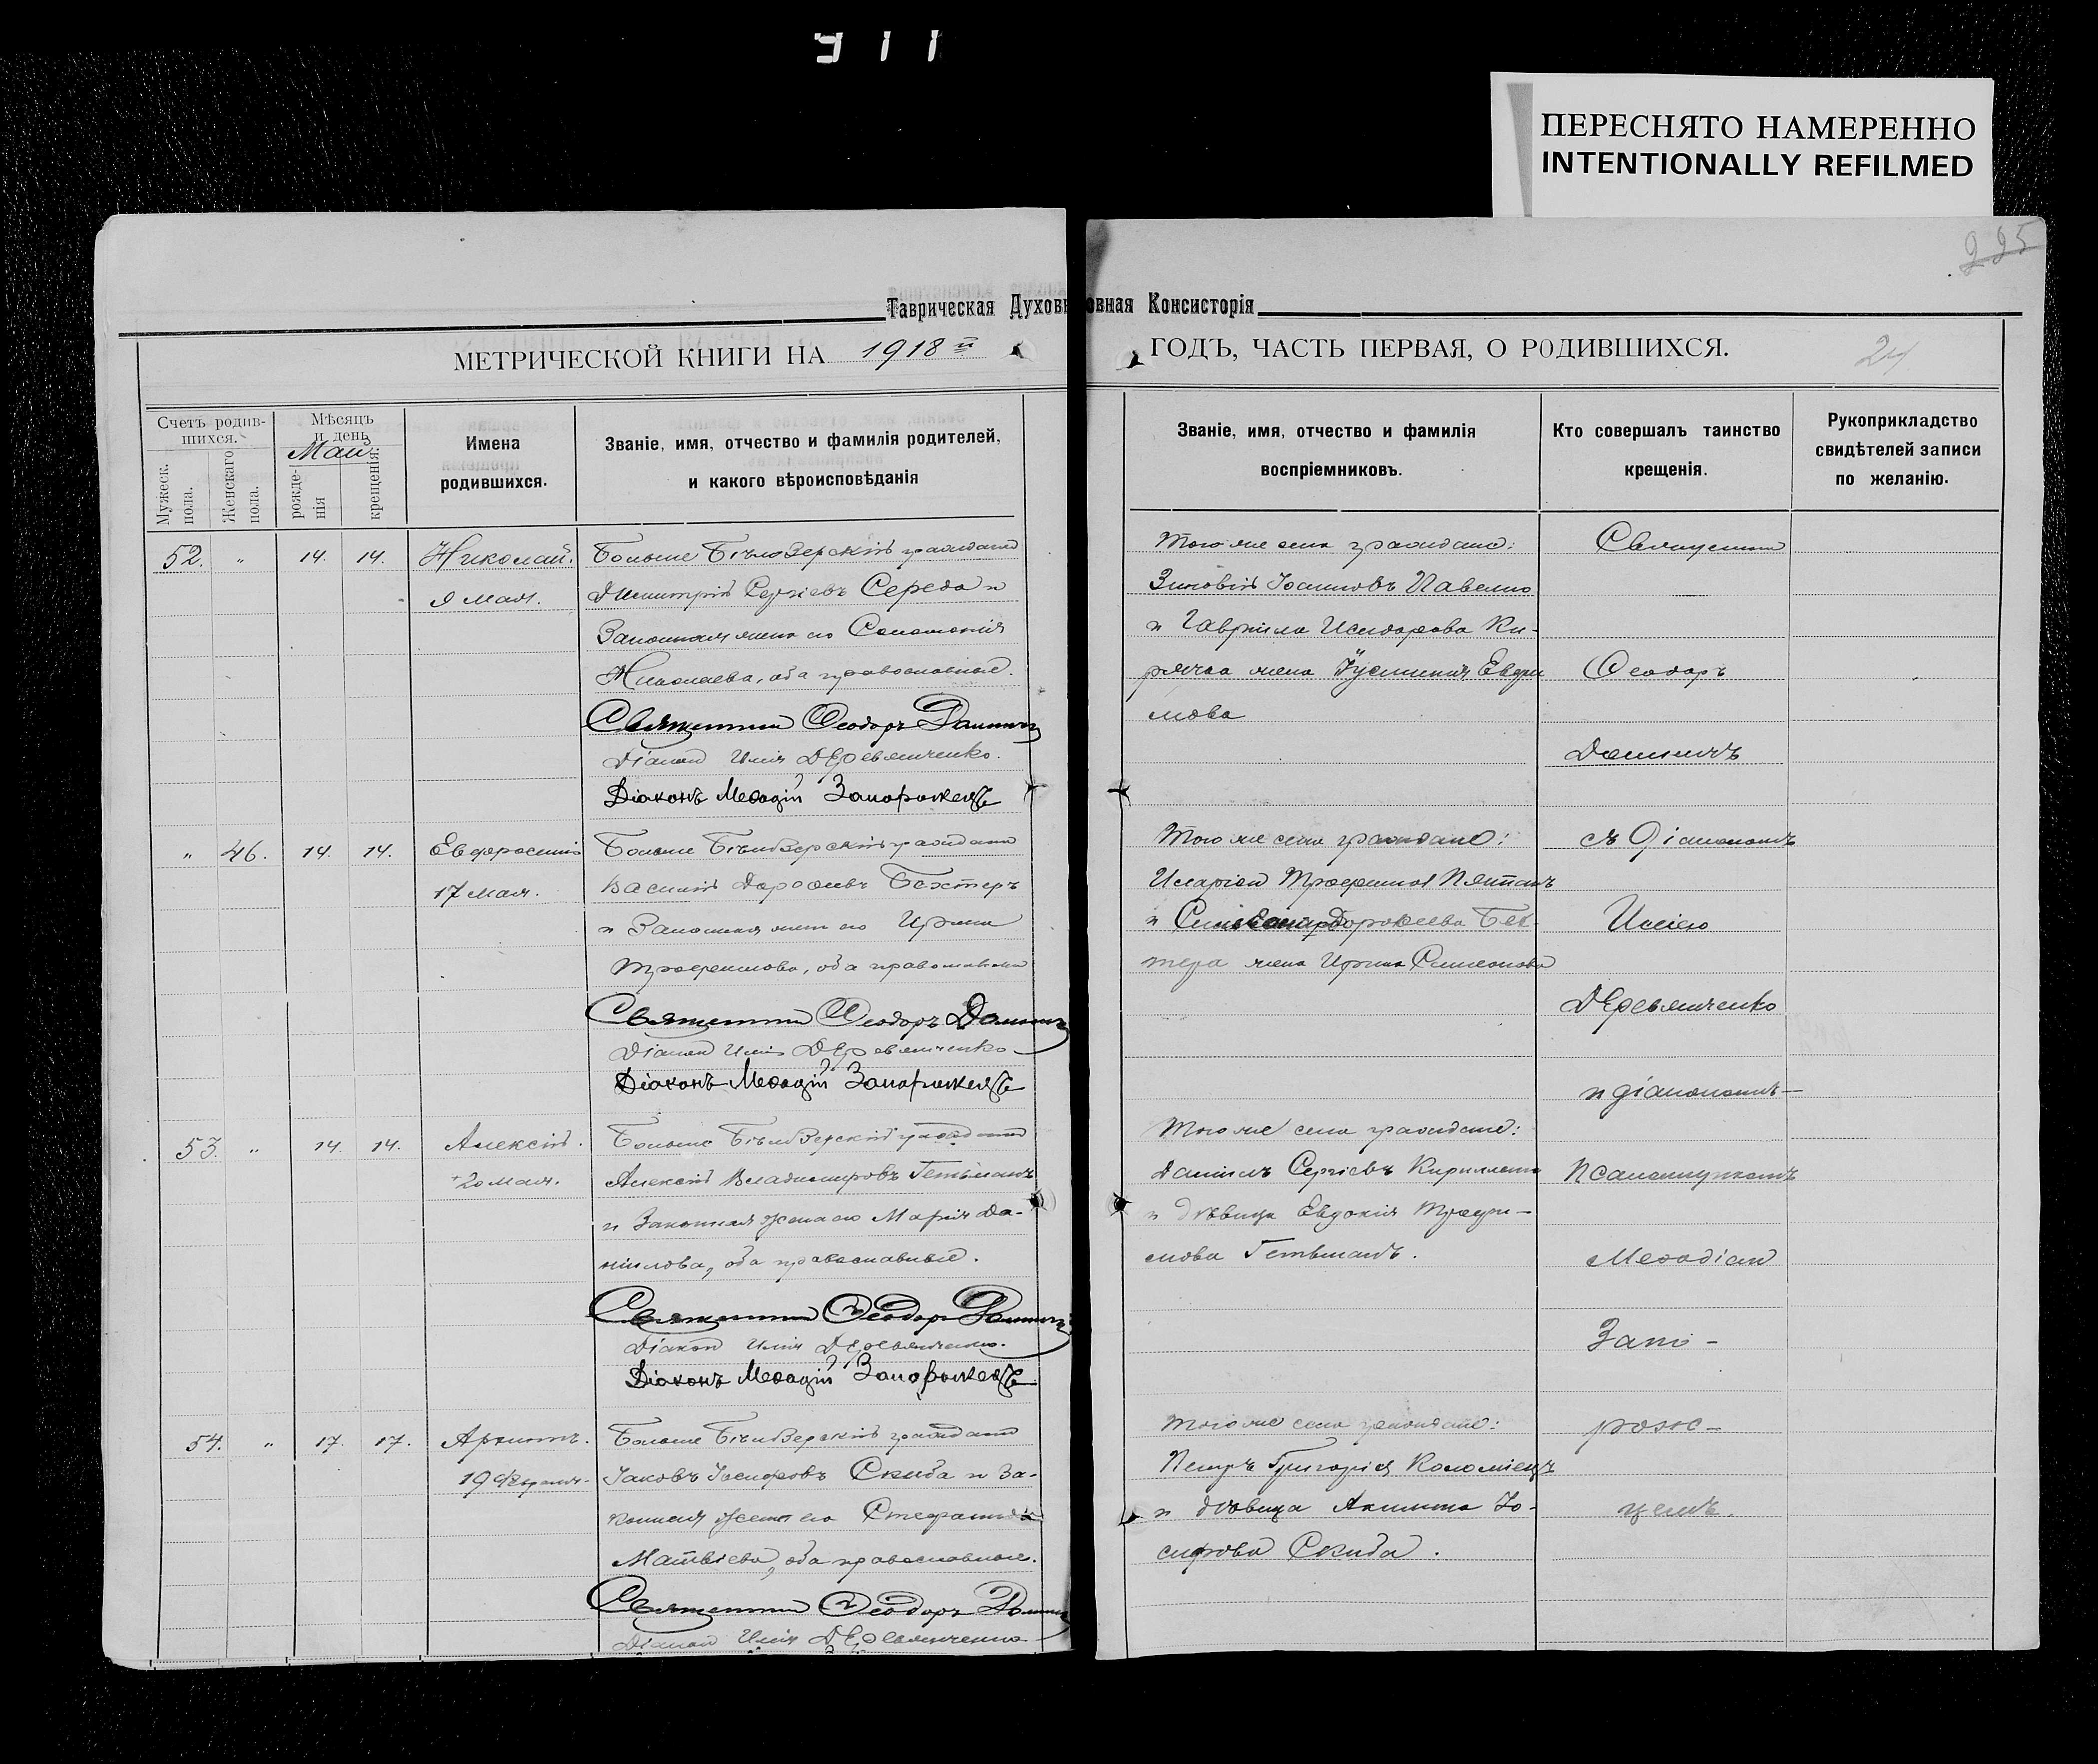 911
ПЕРЕСНЯТО НАМЕРЕННО
INTENTIONALLY REFILMED
225
Таврическая Духовн
овная Консисторія
МЕТРИЧЕСКОЙ КНИГИ НА 1918 й
ГОДЪ, ЧАСТЬ ПЕРВАЯ, О РОДИВШИХСЯ.
24
Счетъ родив-
шихся.
Мужеск.
пола.
Женскаго
пола.
Мѣсяцъ
и день
Май
рожде-
нія
крещенія.
Имена
родившихся.
Званіе, имя, отчество и фамилія родителей,
и какого вѣроисповѣданія
Званіе, имя, отчество и фамилія
воспріемниковъ.
Кто совершалъ таинство
крещенія.
Рукоприкладство
свидѣтелей записи
по желанію.
52. " 14. 14. Николай.
9 мая.
Больше Бѣлозерскій гражданин
Димитрій Сергіевъ Середа и
Законная жена его Соломонія
Николаева, оба православные.
Священник Ѳеодоръ Данич
Діакон Илія Деревянченко.
Діаконъ Меѳодій Запорожецъ
Того же села граждане:
Зиновій Іоанновъ Павелко
и Гавриила Исидорова Ки-
рячка жена Іустинія Евѳи
мова
" 46. 14. 14. Евфросинія
17 мая.
Больше Бѣлозерскій гражданин
Василій Дороѳеевъ Бехтеръ
и Законная жена его Ирина
Трофимова, оба православные
Священник Ѳеодоръ Данич
Діакон Илія Деревянченко
Діаконъ Меѳодій Запорожецъ
Того же села граждане:
Иларіон Трофимов
и Дороѳеева Бех-
тера жена Ирина Симеонова
53. " 14. 14. Алексій.
20 мая.
Больше Бѣлозерскій гражданин
Алексій Владимировъ Гетьманъ
и Законная жена его Марія Да-
ніилова, оба православные.
Священник Ѳеодоръ Данич
Діакон Илія Деревянченко.
Діаконъ Меѳодій Запорожецъ
Того же села граждане:
Даніилъ Сергіевъ Кириленко
и дѣвица Евдокія Трофи-
мова Гетьманъ.
54. " 17. 17. Архиппъ.
19 Февраля.
Больше Бѣлозерскій гражданин
Іаковъ Іосифовъ Скиба и За-
конная жена его Стефанида
Матвіева, оба православные.
Священник Ѳеодоръ Данич
Діакон Илія Деревянченко
Того же села граждане:
Петръ Григорія Коломіецъ
и дѣвица Акилина Іо-
сифова Скиба.
Священник
Ѳеодоръ
Даничъ
съ Діакономъ
Иліею
Деревянченко
и діакономъ-
Псаломщикомъ
Меѳодіем
Запо-
рож-
цемъ.